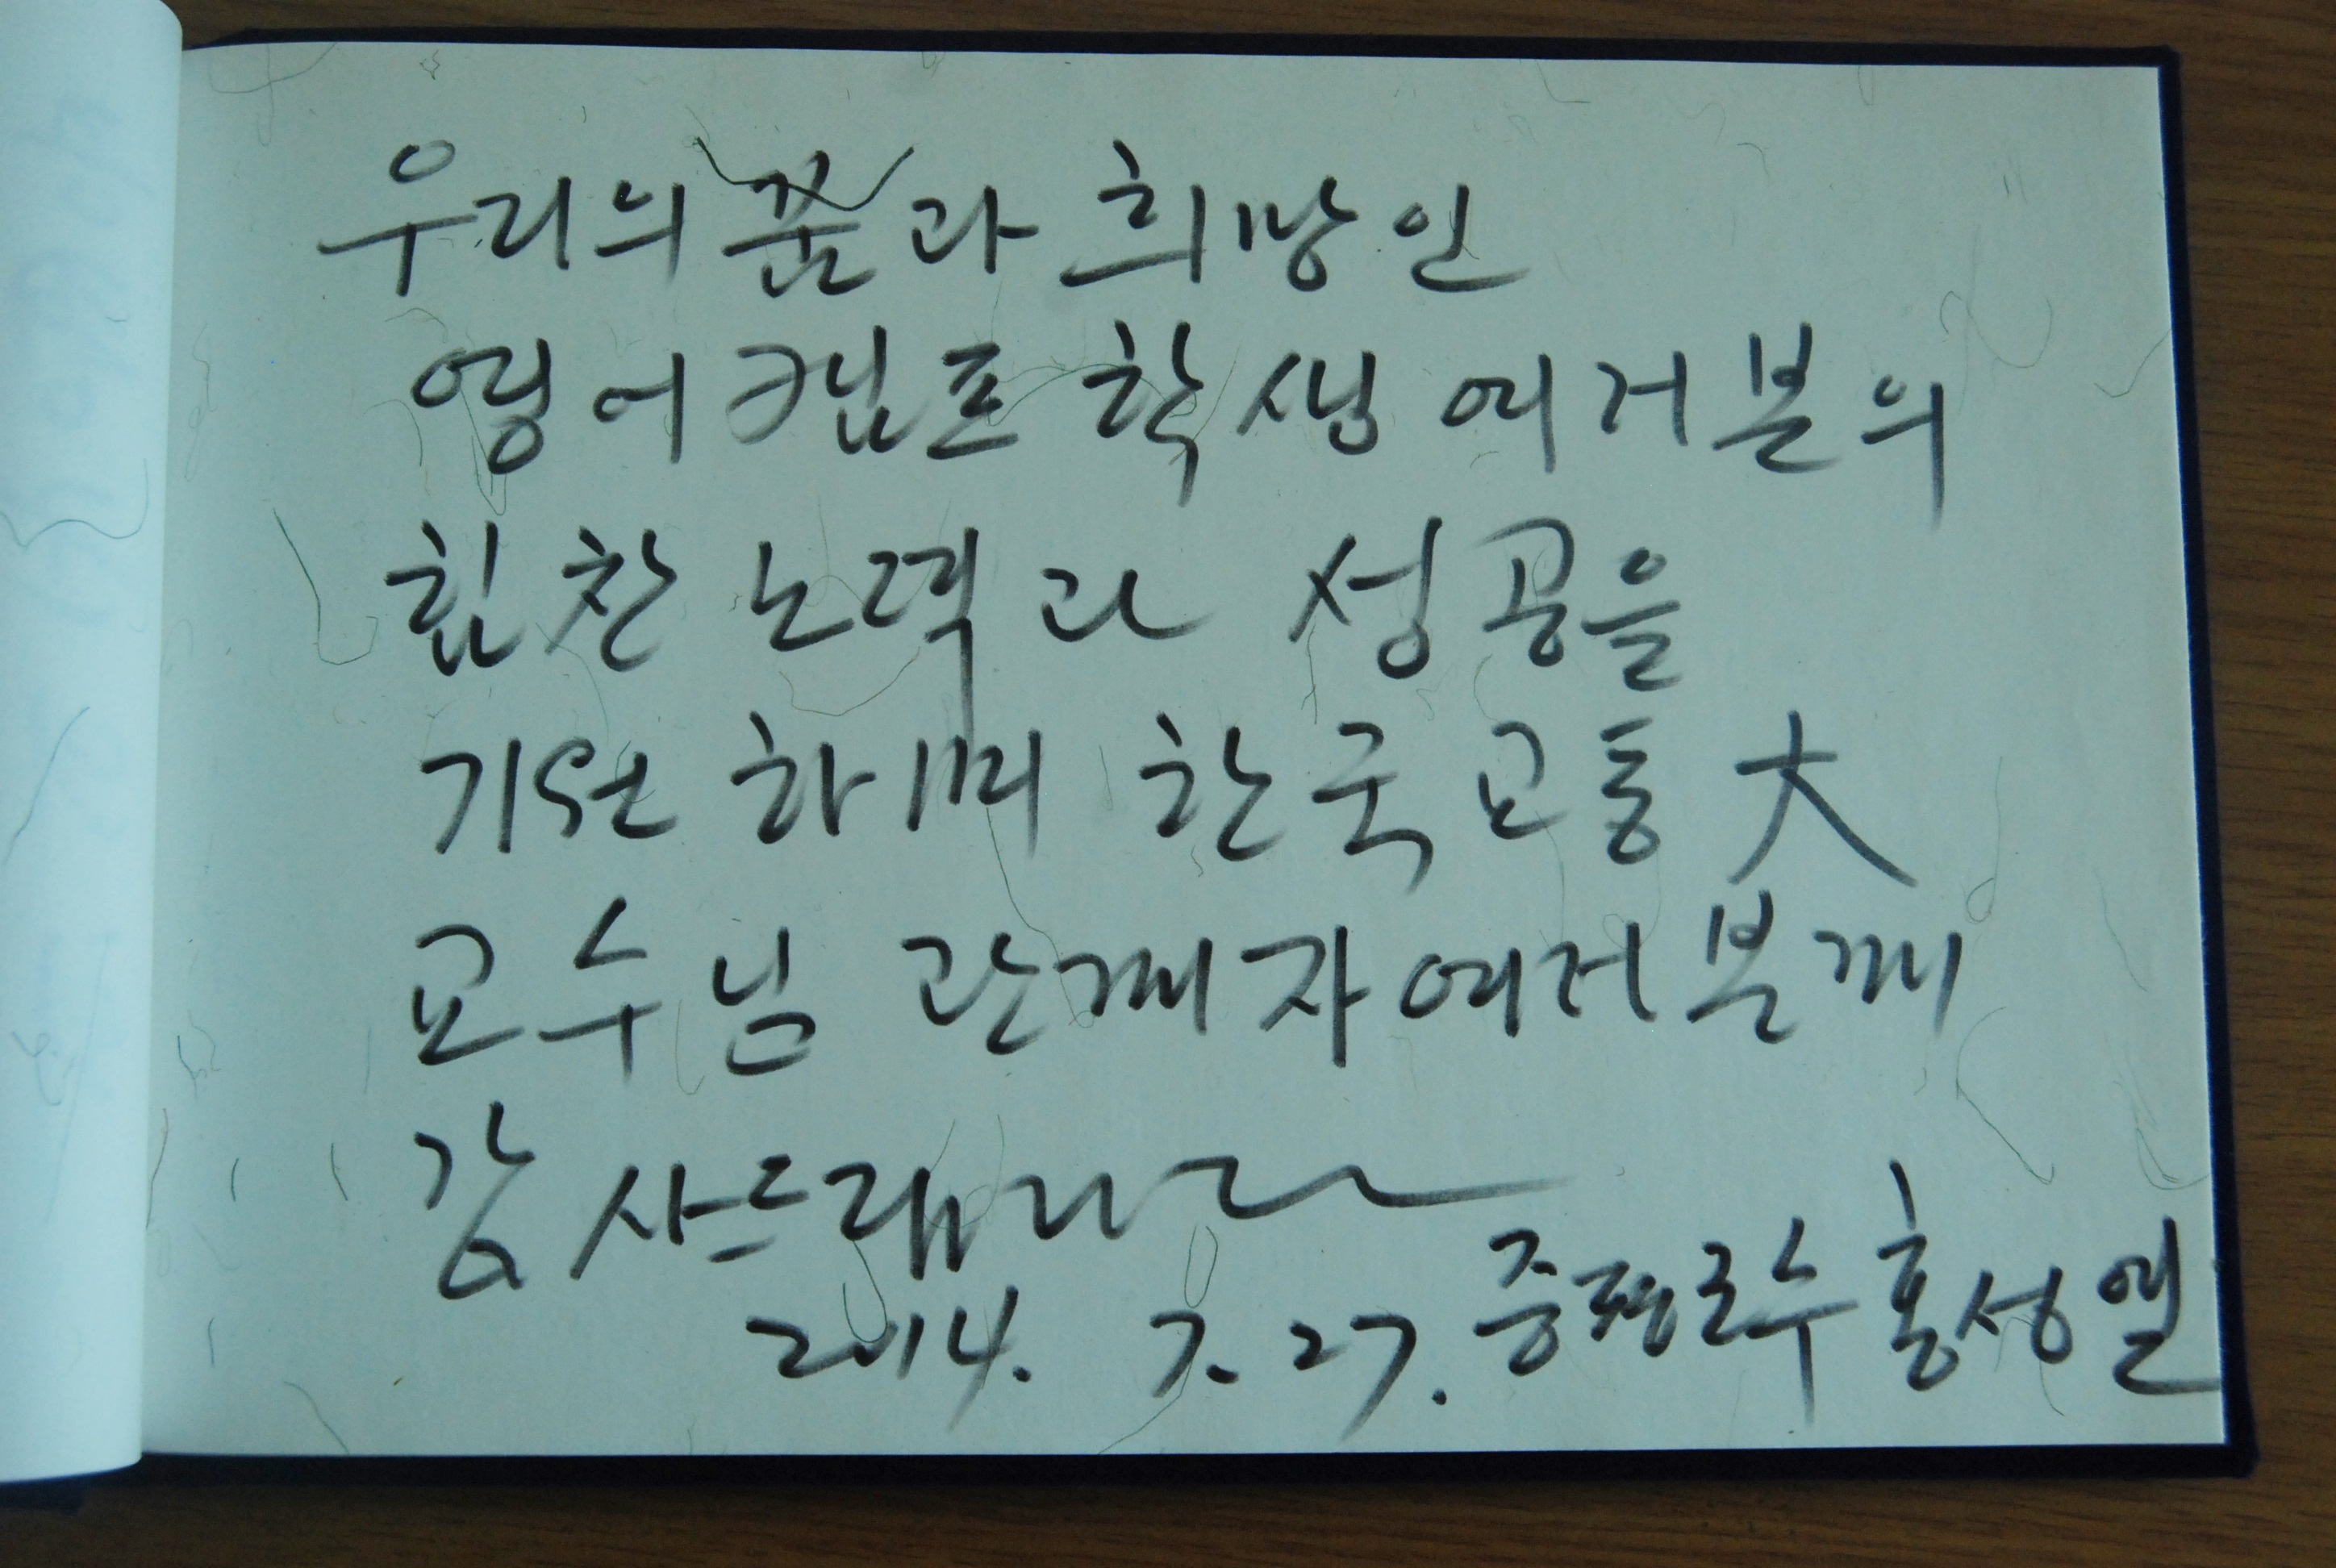 우리의 꿈과 희망인
영어캠프 학생 여러분의
힘찬 노력과 성공을
기원하며 한국교통大
교수님 관계자 여러분께
감사드립니다
2014. 7. 27. 증평군수 홍성열